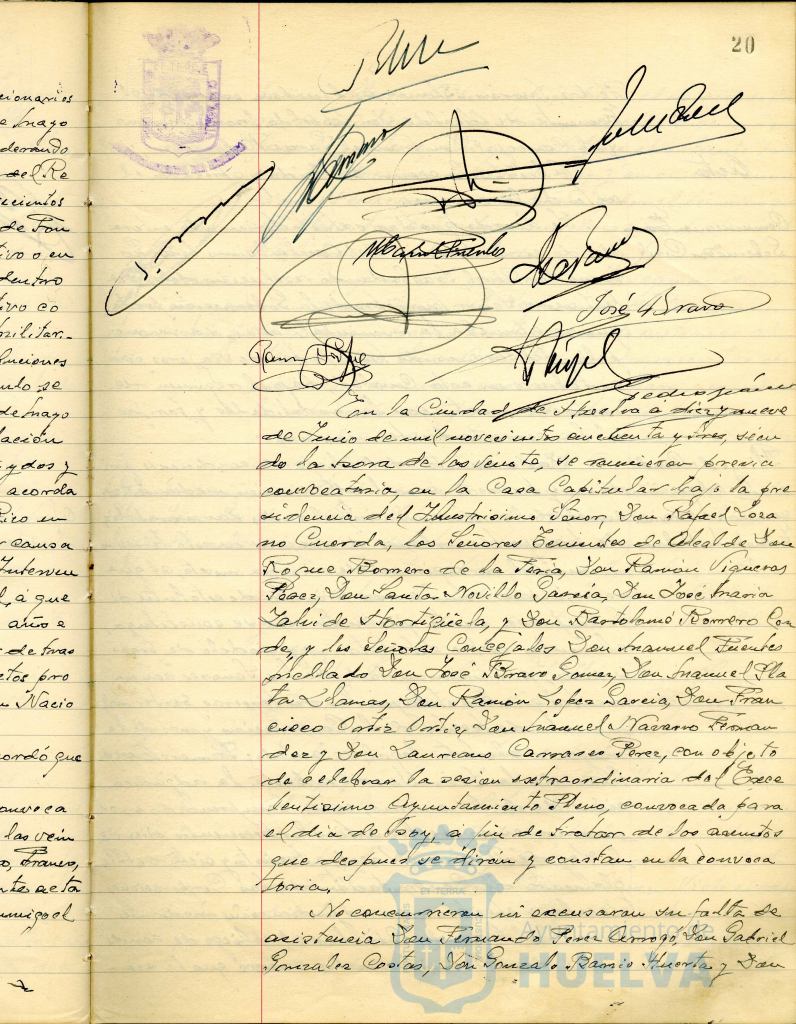 cionarios
e mayo
derando
del Re
de Fon
tivo o en
dentro
tivo co
militar-
luciones
de mayo
lación
y dos y
acorda
en
causa
Interven
l, a que
año e
de tras
etos pro
n Nacio
ordó que
onvoca
las vein
o, Franco,
nte acta
migo el
20
José Bravo
Pedro
En la Ciudad de Huelva a diez y nueve
de Junio de mil novecientos cincuenta y tres, sien
do la hora de las veinte, se reunieron previa
convocatoria, en la Casa Capitular bajo la pre
sidencia del Ilustrisimo Señor, Don Rafael Loza
no Cuerda, los Señores Tenientes de Alcalde Don
Roque Borrero de la Feria, Don Ramón Vigueras
Perez, Don Santos Novillo Garcia, Don José Maria
Jalvide Hortigüela, y Don Bartolomé Borrero Con
de, y los Señores Concejales Don Manuel Fuentes
Mellado Don José Bravo Gomez, Don Manuel Pla
ta Llamas, Don Ramón Lopez Garcia, Don Fran
cisco Ortiz Ortiz, Don Manuel Navarro Fernan
dez y Don Laureano Carrasco Perez, con objeto
de celebrar la sesion extraordinaria del Exce
lentisimo Ayuntamiento Pleno, convocada para
el dia de hoy, a fin de tratar de los asuntos
que despues se dirán y constan en la convoca
toria.
No concurrieron ni excusaron su falta de
asistencia Don Fernando Perez Arroyo, Don Gabriel
Gonzalez Costas, Don Gonzalo Barrio Huerta y Don
Ayuntamiento de
HUELVA